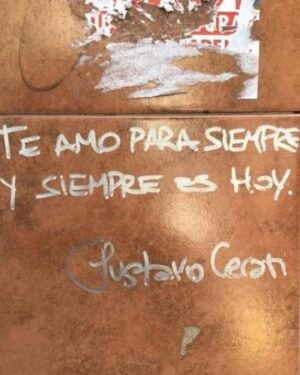 TE AMO PARA SIEMPRE
Y SIEMPRE ES HOY.
Gustavo Cerati